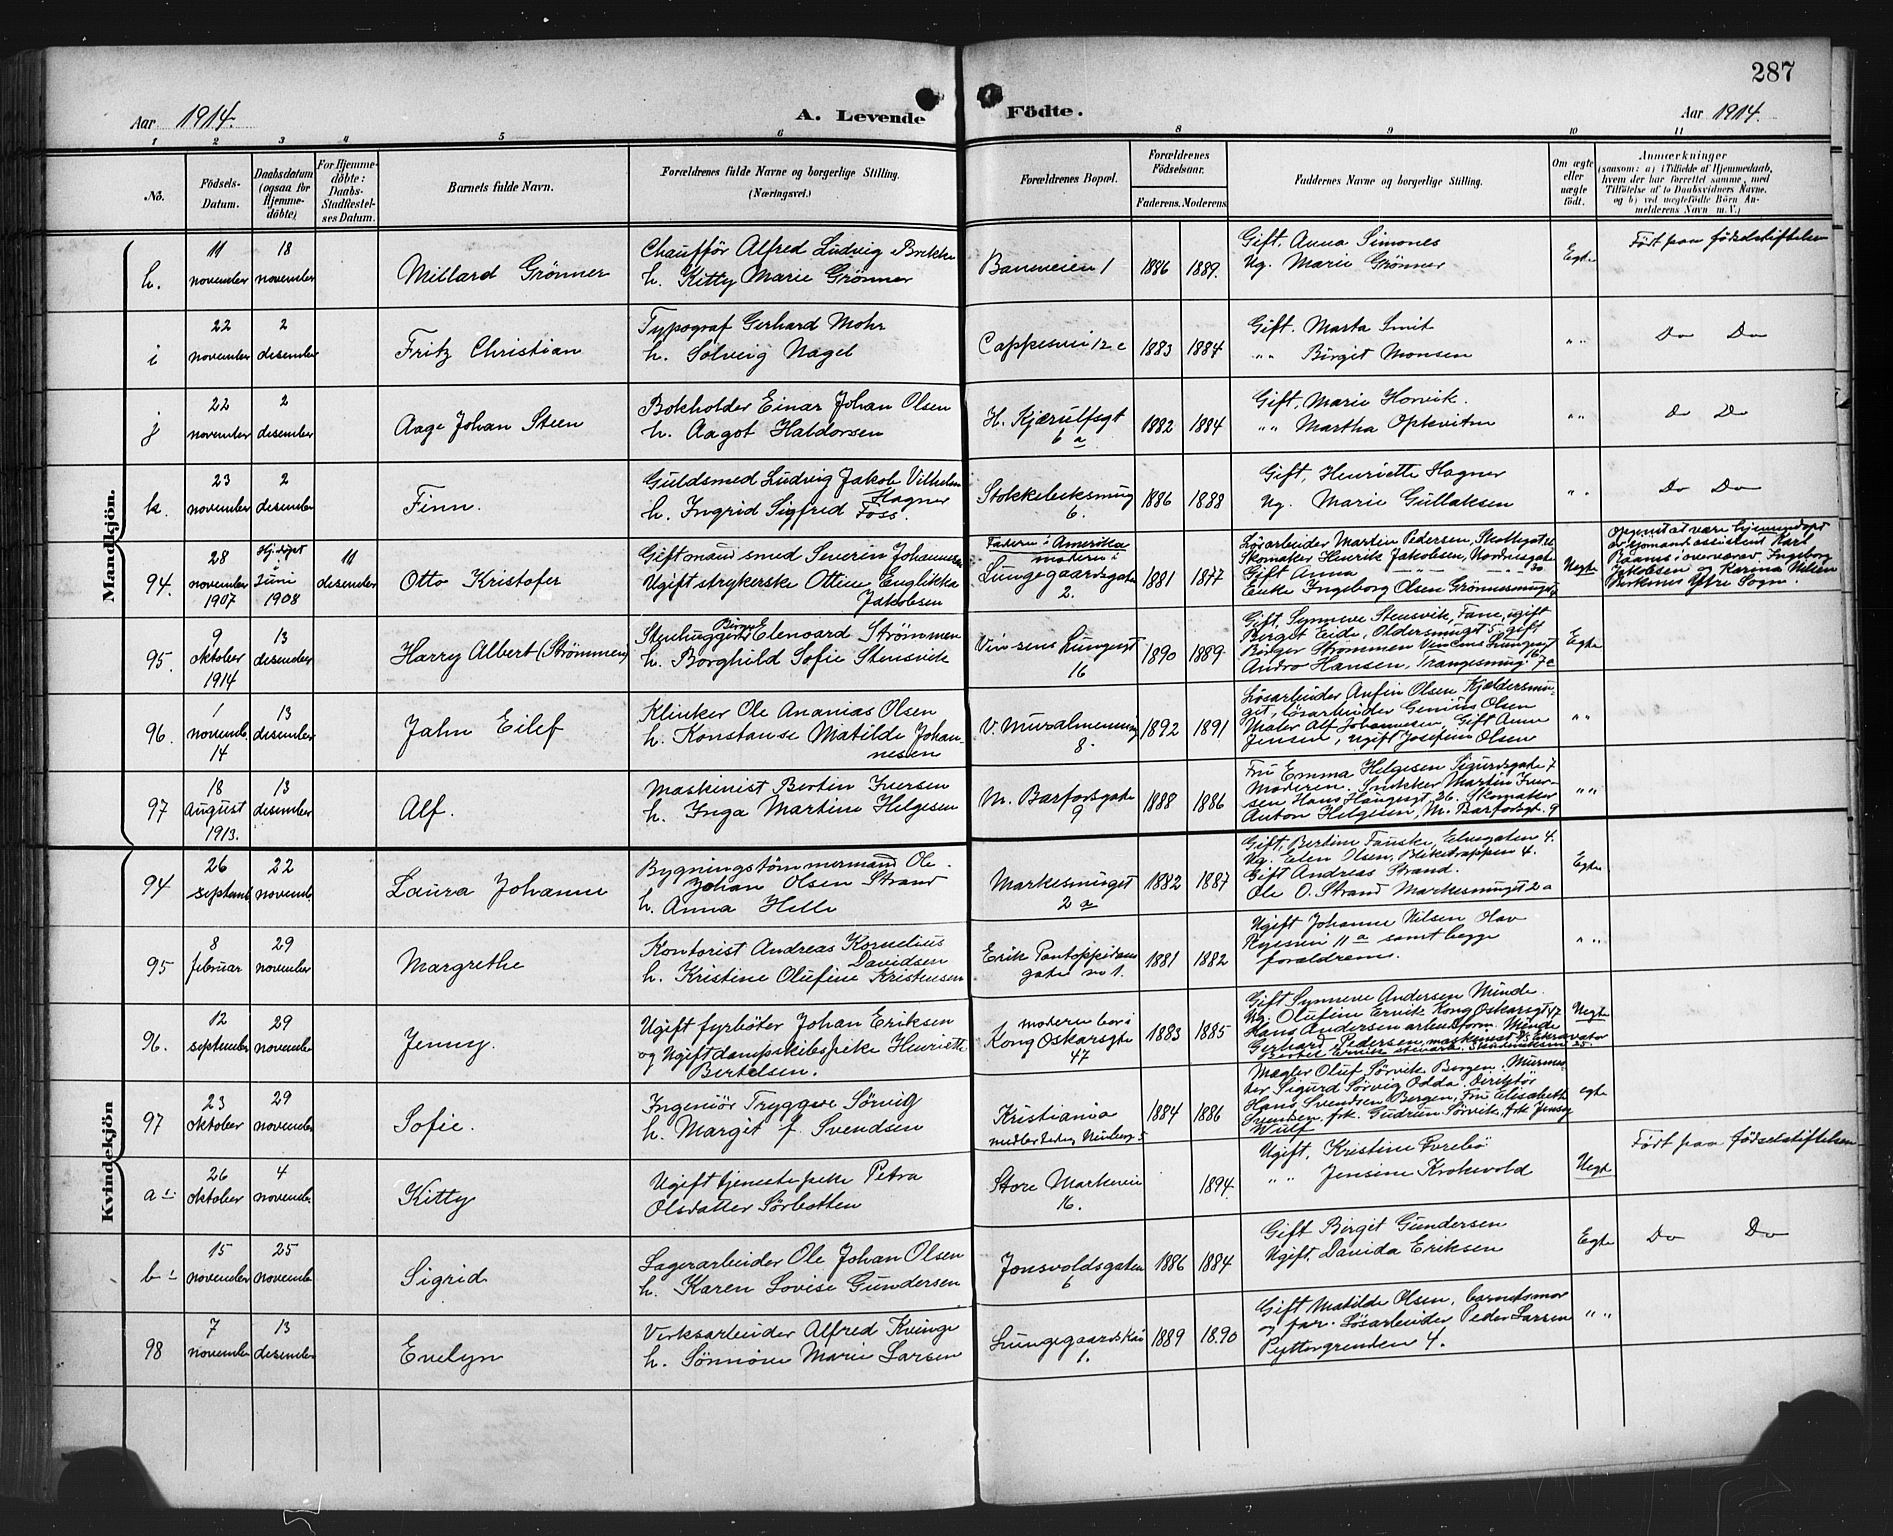 287
Aar 1914.
A. Levende Födte.
Aar 1914.
1 2 3 4 5 6 8 9 10 11
No.
Födsels-Datum.
Daabsdatum (ogsaa for Hjemme-döbte)
For Hjemme-döbte: Daabs-Stadfæstel-ses Datum.
Barnets fulde Navn.
Forældrenes fulde Navne og borgerlige Stilling.
(Næringsvei.)
Forældrenes Bopæl.
Forældrenes Födselsaar.
Faderens. Moderens.
Faddernes Navne og borgerlige Stilling.
Om ægte eller uægte födt.
Anmærkninger
(saasom: a) i Tilfælde af Hjemmedaab, hvem der har forrettet samme, med Tilföielse af to Daabsvidners Navne, og b) ved uægtefödte Börn An-melderens Navn m. V.)
Mandkjön.
h.
11 november
18 november
Millard Grönner
Chaufför Alfred Ludvig Brekke
h. Kitty Marie Grönner
Baneveien 1
1886
1889.
Gift. Anna Simones
Ug. Marie Grönner
Egte
Född paa födselstiftelsen
i
22 november
2 desember
Fritz Christian
Typograf Gerhard Mohr
h. Solveig Nagel
Cappesvei 12 c
1883
1884
Gift. Marta Smit
" " Birgit Monsen
" "
Do Do
j
22 november
2 desember
Aage Johan Steen
Bokholder Einar Johan Olsen
h. Aagot Haldorsen
H. Kjærulfsgt
6 a
1882
1884
Gift. Marie Horvik.
" " Martha
" "
Do Do
k.
23 november
2 desember
Finn.
Guldsmed Ludvig Jakob Vilhelm Hagner
h. Ingrid Sigfred Foss.
Stokkebeksmug
6.
1886
1888
Gift, Henriette Hagner
Ug. Marie Gullaksen
" "
Do Do
94.
28 november 1907
Juni 1908
11 desember
Otto Kristofer
Gift mand smed Severin Johannesen
Ugift strykerske Ottine Englikka
Jakobsen
Faderen i Amerika
moderen i
Lungegaardsgaten
2.
1881
1877
Lösarbeider Martin Pedersen, Skottegt
Skomaker Henrik Jakobsen, Nordnesgate 30
Gift Anna
Enke Ingeborg Olsen Grönnesmuget
Uegte
Opgenit at være hjemmedöpt
av gomantassistent Karl
i overvær av Ingeborg
Jakobsen og Karina Nilsen
Ytre Sogn.
95.
9 oktober 1914
13 desember
Harry Albert (Strömmen)
Stenhugger Birger Elenoard Strömmen
h. Borghild Sofie Stensvik
Vinsens Lungesgt
16
1890
1889.
Gift. Synneve Stensvik, Fane, ugift
Berget Eide, Oldersmuget 5, gift
Birger Strömmen Vincens Lungesgt 16
Andro Hansen, Trangesmug 7c
Egte
96.
1 novemb 14
13 desember
Jahn Eilef
Klinker Ole Ananias Olsen
h. Konstanse Matilde Johan-
nesen
V. Muralmenning
8.
1892
1891
Lösarbeider Anfin Olsen Kjeldersmu-
get, Lösarbeider Genius Olsen
Maler Alf Johannesen, Gift Anne
Jensen, ugift Josefine Olsen
" "
97
18 August 1913.
13 desember
Alf.
Maskinist Bertin Iversen
h. Inga Martine Helgesen
M. Barfotsgate
9
1888
1886
Fru Emma Helgesen Sigurdsgate 7
Moderen. Snekker Martin Iver-
sen Hans Haugesgt 26. Skomaker
Anton Helgesen, M. Barfotsgt. 9
" "
Kvindekjön
94
26 septemb
22 novemb.
Laura Johanne
Bygningstömmermand Ole
Johan Olsen Strand
h. Anna Helle
Markesmuget
2 a
1882
1887
Gift, Bertine Fauske, Elvegaten 4.
Ug. Elen Olsen, Bliketrappen 4.
Gift Andreas Strand.
Ole O. Strand Markesmuget 2 a
Egte
95
8 februar
29 november
Margrethe
Kontorist Andreas Kornelius
Davidsen
h. Kristine Olufine Kristensen
Erik Pontoppidans
gate no 1.
1881
1882
Ugift Johanne Nilsen Hav
11 a samt begge
forældrene.
" "
96.
12 september
29 november
Jenny.
Ugift fyrböter Johan Eriksen
og Ugift dampskibspike Henriette
Bertelsen.
moderen bor i
Kong Oskarsgate
47
1883
1885
Gift Synneve Andersen Minde.
Ug. Olufine Ervik Kong Oskarsgt 47
Hans Andersen arbeidsform. Minde
Gerhard Pedersen, maskinist
Uegte
97
23 oktober
29 november
Sofie.
Ingeniör Tryggve Sörvig
h. Margit f. Svendsen
Kristiania
1884
1886
Mægler Oluf Sörvik Bergen. Murmes-
ter Sigurd Sörvig Odda. Direktör
Hans Svendsen Bergen, Fru Elisabeth
Svendsen, frk. Gudrun Sörvik, frk Jenny
Wulf
egte
a
26 oktober
4 novemb.
Kitty
Ugift tjeneste pike Petra
Olsdatter Sörbotten
Store Markevei
16.
1894
Ugift, Kristine
" " Jensine Krokevold
Uegte
Född paa födselstiftelsen
b
15 november
25 novemb
Sigrid
Lagerarbeider Ole Johan Olsen
h. Karen Lovise Gundersen
Jonsvoldsgaten
6
1886
1884
Gift Birgit Gundersen
Ugift. Davida Eriksen
Egte
Do Do
98
7 november
13 desember
Evelyn
Verksarbeider Alfred Kvinge
h. Sönnöve Marie Larsen
Lungegaardskai
1.
1889
1890
Gift Matilde Olsen, barnets mor
og far. Lösarbeider Peder Larsen
Pyttergrenden 4.
" "